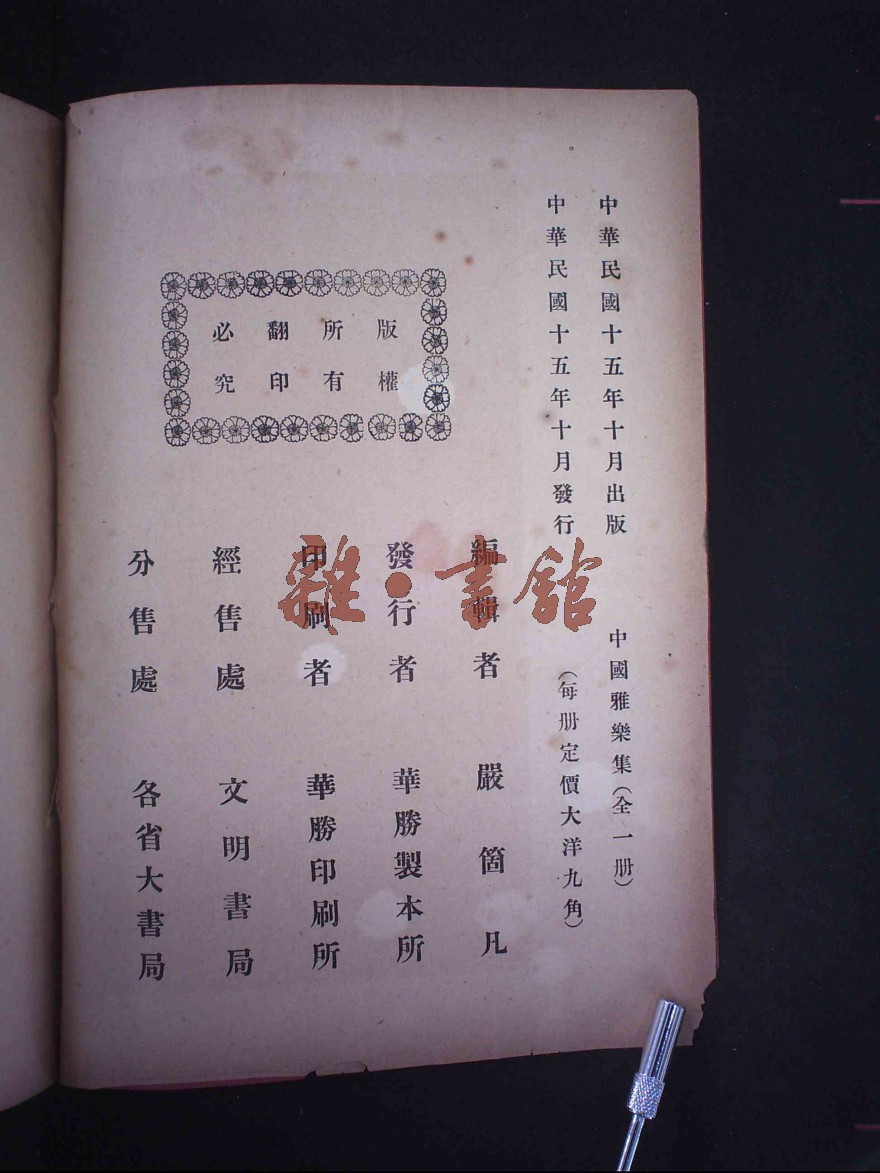 中華民國十五年十月出版
中國雅樂集（全一册）
中華民國十五年十月發行
（每册定價大洋九角）
版權
所有
翻印
必究
編輯者 嚴箇凡
發行者 華勝製本所
印刷者 華勝印刷所
經售處 文明書局
分售處 各省大書局
雜·書館